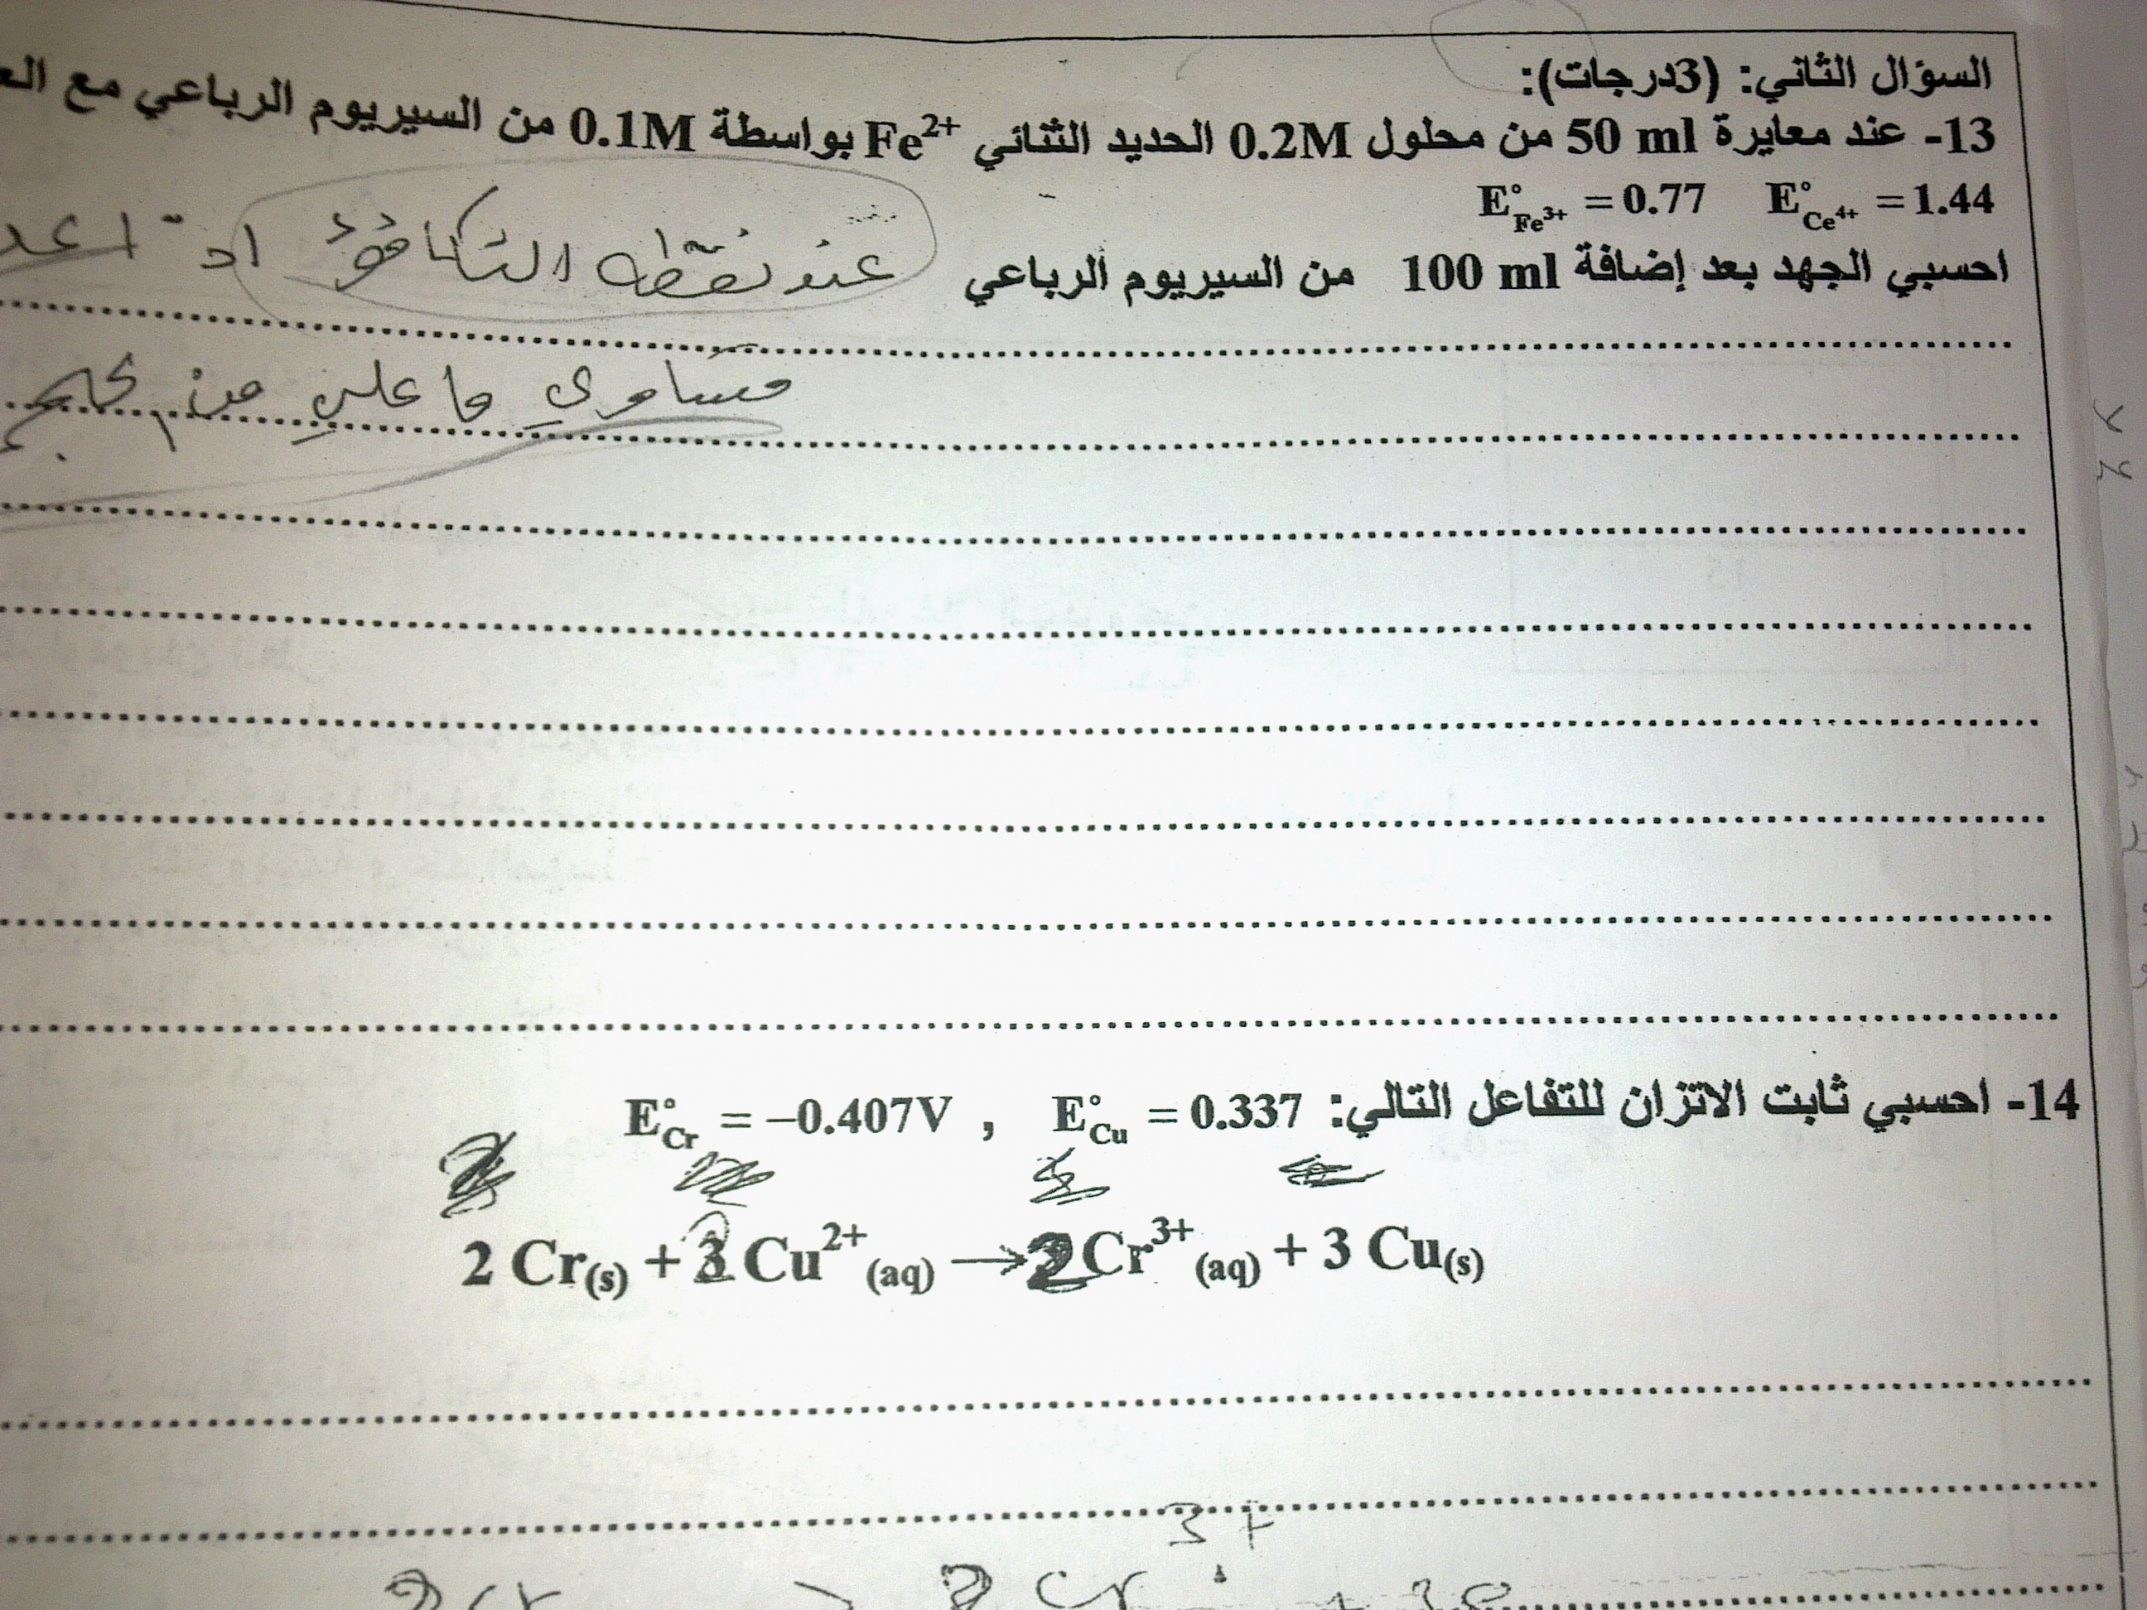 السؤال الثاني: (3درجات):
13- عند معايرة 50 ml من محلول 0.2M الحديد الثنائي Fe²⁺ بواسطة 0.1M من السيريوم الرباعي مع
E°Fe³⁺ = 0.77 E°Ce⁴⁺ = 1.44
احسبي الجهد بعد إضافة 100 ml من السيريوم الرباعي عند نقطة التكافؤ
متساوي ما علي من
14- احسبي ثابت الاتزان للتفاعل التالي: E°Cr = −0.407V , E°Cu = 0.337
2 Cr(s) + 3 Cu²⁺(aq) → 2 Cr³⁺(aq) + 3 Cu(s)
3+
2Cr → 2 Cr + 3e